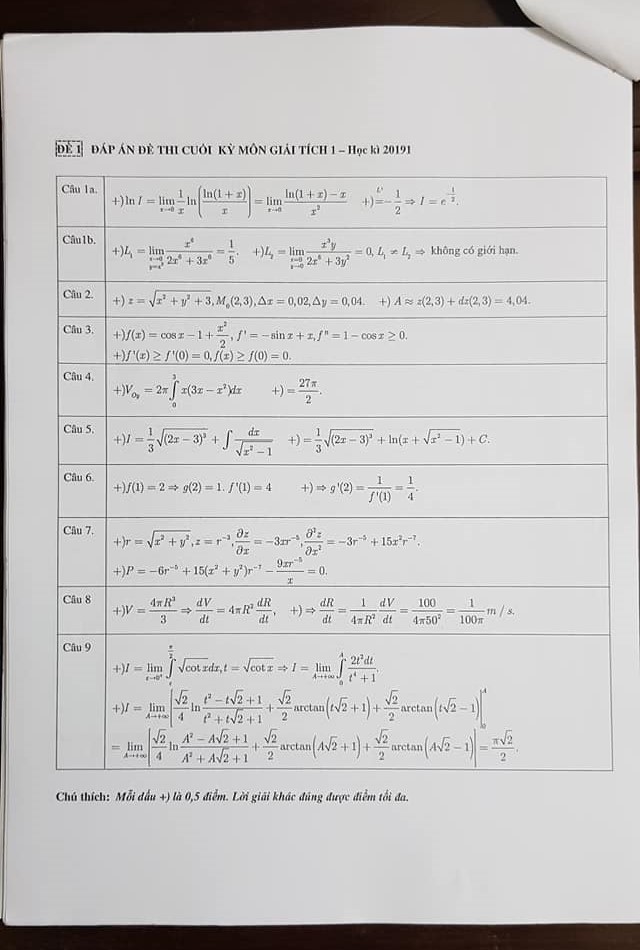 ĐỀ 1 ĐÁP ÁN ĐỀ THI CUỐI KỲ MÔN GIẢI TÍCH 1 – Học kì 20191
Câu 1a. +) ln I = lim_{x→0} 1/x ln(ln(1+x)/x) = lim_{x→0} (ln(1+x) − x)/x² +) =^{L'} −1/2 ⇒ I = e^{-1/2}.
Câu1b. +) L₁ = lim_{x→0, y=x³} x⁶/(2x⁶ + 3x⁶) = 1/5. +) L₂ = lim_{x=0, y→0} x³y/(2x⁶ + 3y²) = 0, L₁ ≠ L₂ ⇒ không có giới hạn.
Câu 2. +) z = √(x² + y² + 3), M₀(2,3), Δx = 0,02, Δy = 0,04. +) A ≈ z(2,3) + dz(2,3) = 4,04.
Câu 3. +) f(x) = cos x − 1 + x²/2, f' = −sin x + x, f" = 1 − cos x ≥ 0.
+) f'(x) ≥ f'(0) = 0, f(x) ≥ f(0) = 0.
Câu 4. +) V_{Oy} = 2π ∫₀³ x(3x − x²)dx +) = 27π/2.
Câu 5. +) I = 1/3 √((2x − 3)³) + ∫ dx/√(x² − 1) +) = 1/3 √((2x − 3)³) + ln(x + √(x² − 1)) + C.
Câu 6. +) f(1) = 2 ⇒ g(2) = 1. f'(1) = 4 +) ⇒ g'(2) = 1/f'(1) = 1/4.
Câu 7. +) r = √(x² + y²), z = r⁻³, ∂z/∂x = −3xr⁻⁵, ∂²z/∂x² = −3r⁻⁵ + 15x²r⁻⁷.
+) P = −6r⁻⁵ + 15(x² + y²)r⁻⁷ − 9xr⁻⁵/x = 0.
Câu 8 +) V = 4πR³/3 ⇒ dV/dt = 4πR² dR/dt, +) ⇒ dR/dt = 1/(4πR²) dV/dt = 100/(4π50²) = 1/(100π) m / s.
Câu 9 +) I = lim_{ε→0⁺} ∫_ε^{π/2} √(cot x)dx, t = √(cot x) ⇒ I = lim_{A→+∞} ∫₀^A 2t²dt/(t⁴ + 1).
+) I = lim_{A→+∞} [√2/4 ln (t² − t√2 + 1)/(t² + t√2 + 1) + √2/2 arctan(t√2 + 1) + √2/2 arctan(t√2 − 1)]|₀^A
= lim_{A→+∞} [√2/4 ln (A² − A√2 + 1)/(A² + A√2 + 1) + √2/2 arctan(A√2 + 1) + √2/2 arctan(A√2 − 1)] = π√2/2.
Chú thích: Mỗi dấu +) là 0,5 điểm. Lời giải khác đúng được điểm tối đa.